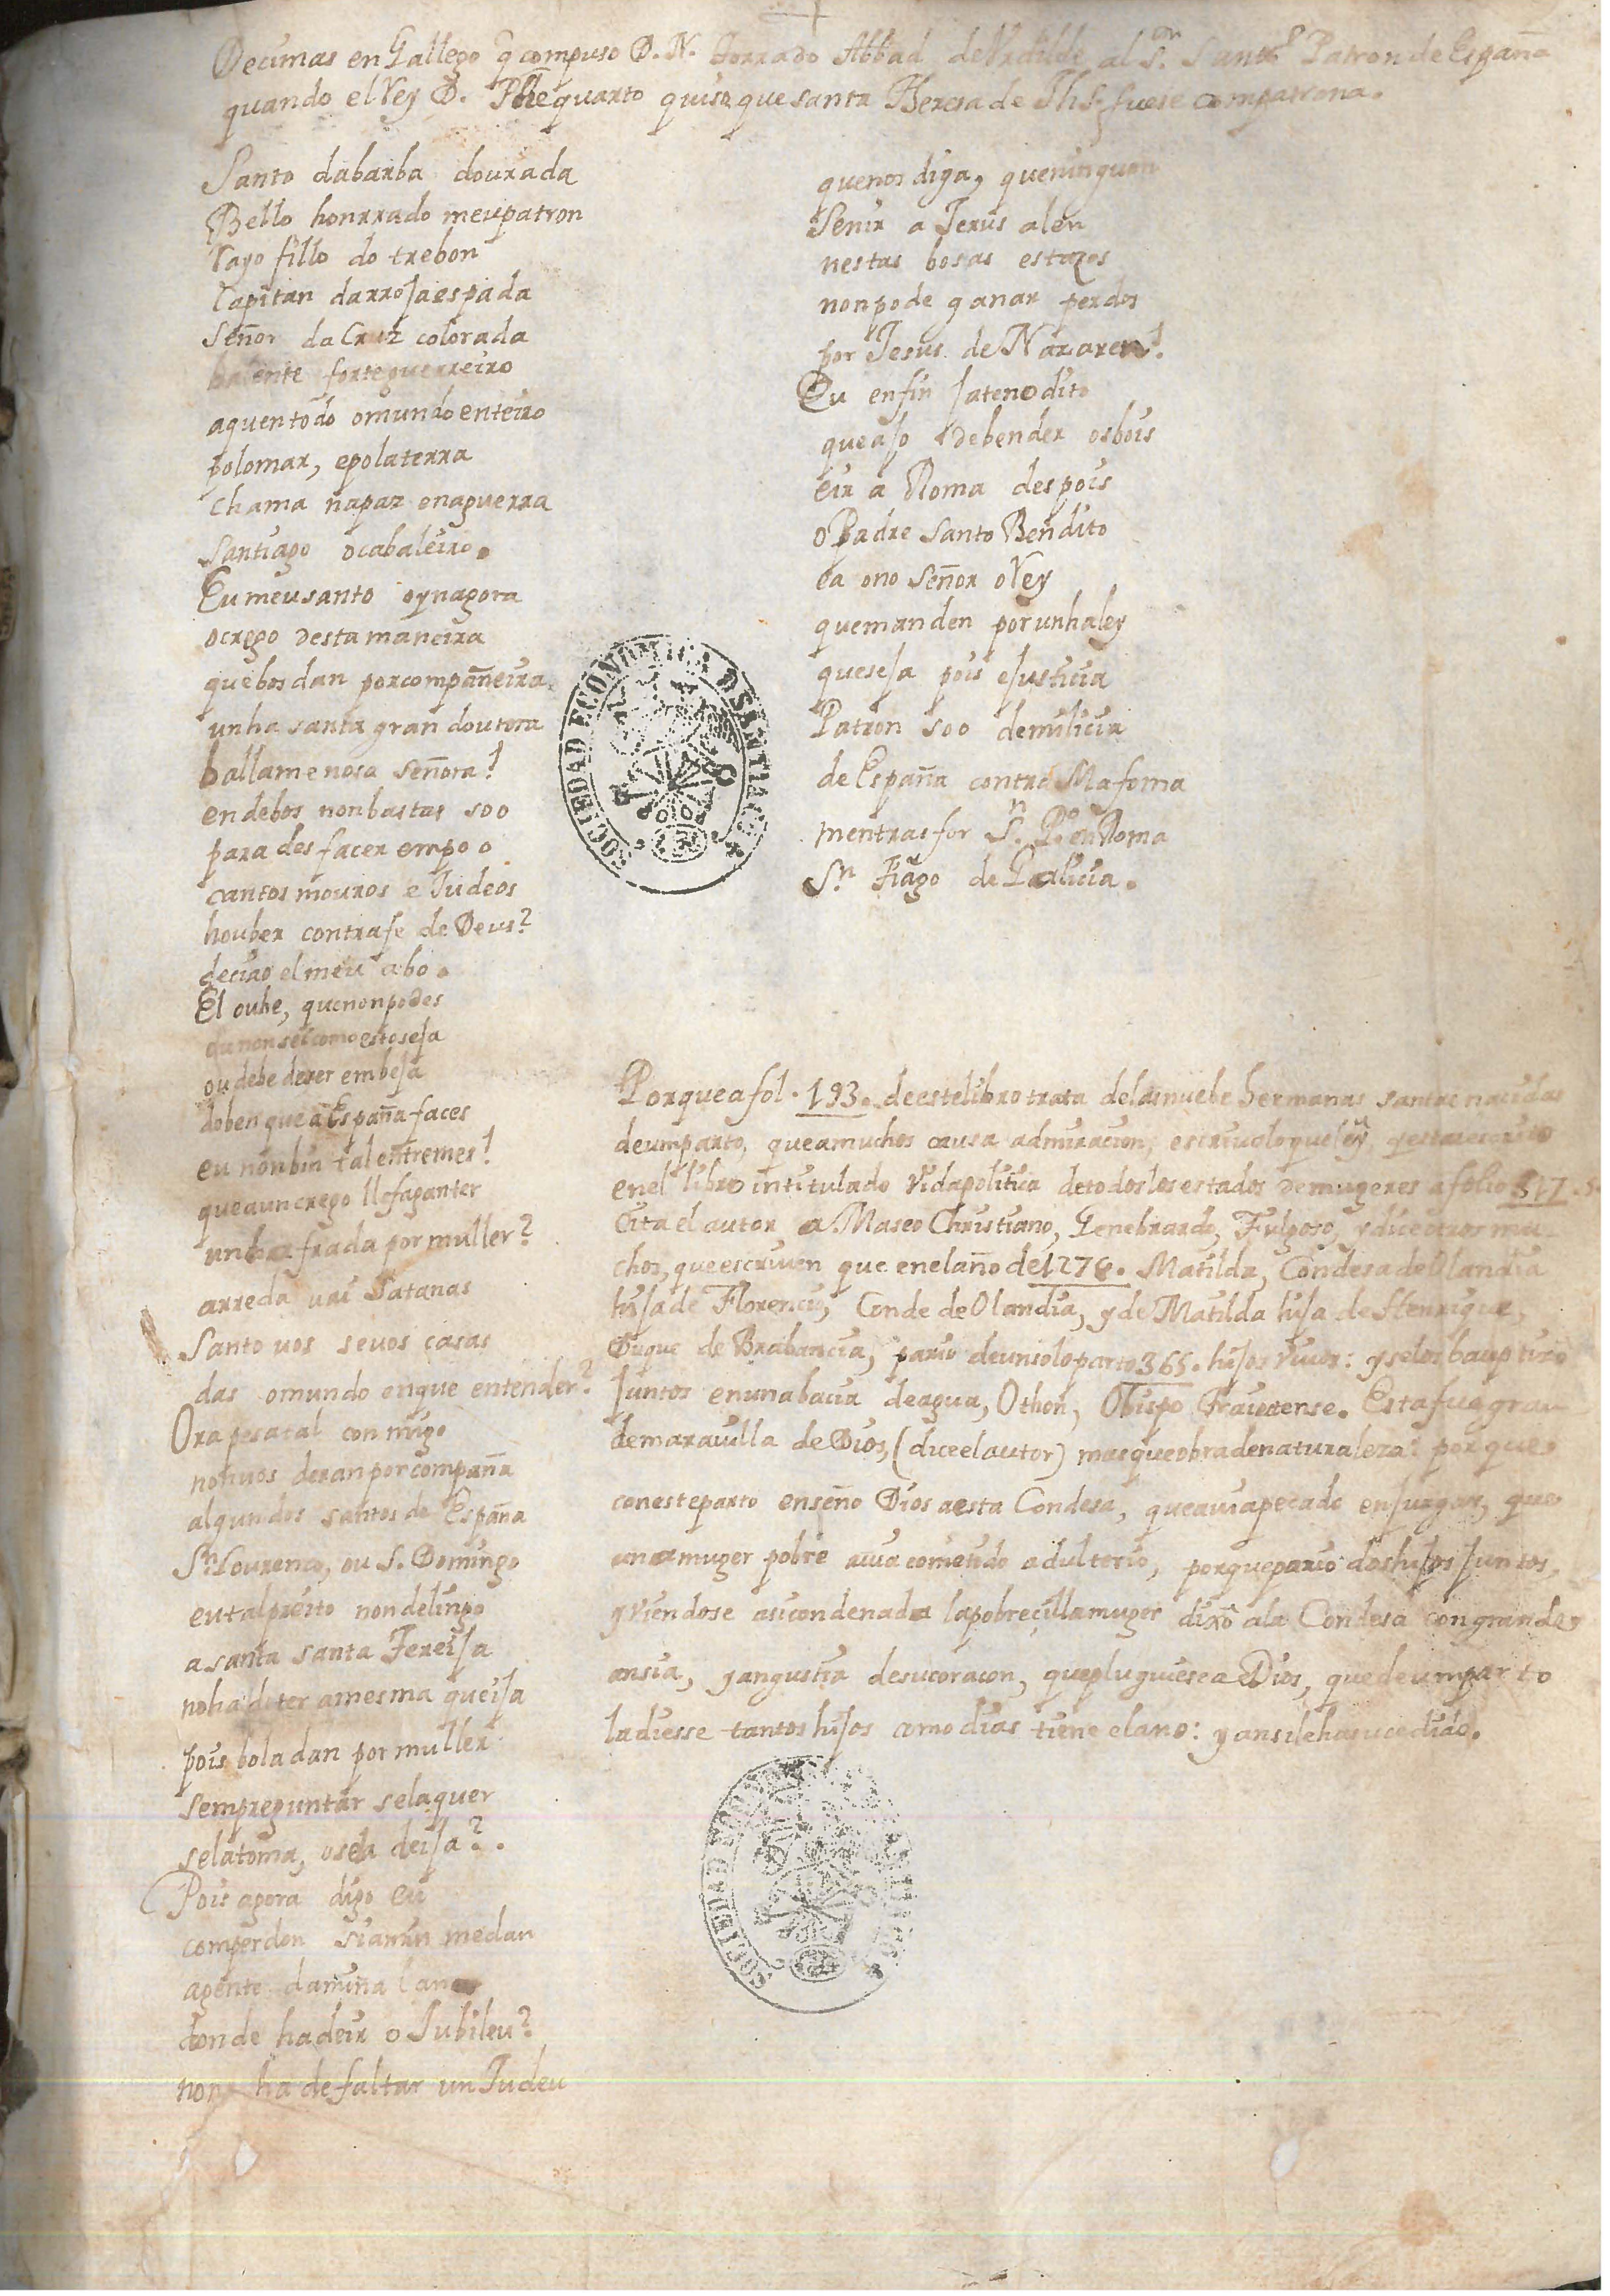 Decimas en Gallego q̃ compuso D. N. Torrado Abbad de Vrdilde al Sor. Santº Patron de España
quando el Rey D. Phe quarto quiso que santa Theresa de Jhs. fuese compatrona.
Santo dabarba dourada
Bello honrrado meu patron
rayo fillo do trebon
Capitan darroja espada
Señor da Cruz colorada
balente forte guerreiro
aquen todo o mundo enteiro
polo mar, e pola terra
chama na paz e na guerra
Santiago o cabaleiro.
Eu meu santo oyn agora
o crego desta maneira
que bos dan por compañeira
unha santa gran doutora
ballame nosa señora!
en de bos non bastas soo
para desfacer em poo
cantos mouros e Judeos
houber contra fe de Deus?
deciao el meu abo.
El ouhe, que non podes
ou non sei como esto seja
ou debe de ser embeja
do ben que a España faces
eu non bin tal entremes!
que a un crego lle fagan ter
unha frada por muller?
arreda vai Satanas
Santo vos se vos casas
das o mundo en que entender?
Ora pesatal con migo
non vos deran por compaña
algun dos santos de España
Sn Lourenco, ou S. Domingo
eu tal preito non delingo
a santa santa Tereija
no ha de ter a mesma queija
pois bola dan por muller
sem preguntar se la quer
se la toma, o se la deija?.
Pois agora digo eu
com perdon si a min me dan
a gente da miña
donde ha de ir o Jubileu?
non ha de faltar un Judeu
que nos diga, que ninguen
Senir a Jerus alen
nestas bosas estazos
non pode ganar perdos
por Jesus de Nazaren!
Eu enfin ja teno dito
que ajo de bender os bois
e ir a Roma despois
o Padre santo Bendito
ea o no señor o Rey
que manden por unha ley
que seja pois e justicia
Patron soo de milicia
de España contra Mafoma
mentras for Sn. Pº en Roma
Sn Tiago de Galicia.
Porque a fol. 193. de este libro trata de las nuebe hermanas santas nacidas
de um parto, que a muchos causa admiracion, escrivo lo que ley, y esta escrito
en el libro intitulado Vida politica de todos los estados de mugeres a folio 317.
Cita el autor a Maseo Christiano, Genebrardo, Fulgoso, y dice otros mu-
chos, que escriven que en el año de 1276. Matilda, Condesa de Olandia
hija de Florencio, Conde de Olandia, y de Matilda hija de Henrique,
Duque de Brabancia, pario de un solo parto 365. hijos vivos: y se los bauptizo
juntos en una bacia de agua, Othon, Obispo Traiectense. Esta fue gran
de maravilla de Dios, (dice el autor) mas que obra de naturaleza: porque
con este parto enseño Dios a esta Condesa, que avia pecado en jurgar, que
una muger pobre avia cometido adulterio, porque pario dos hijos juntos,
y viendose asi condenada la pobrecilla muger dixo a la Condesa con grande
ansia, y angustia de su coraçon, que pluguiese a Dios, que de um parto
la diesse tantos hijos como dias tiene el ano: y ansi le ha sucedido.
SOCIEDAD ECONOMICA DE SANTIAGO
SOCIEDAD